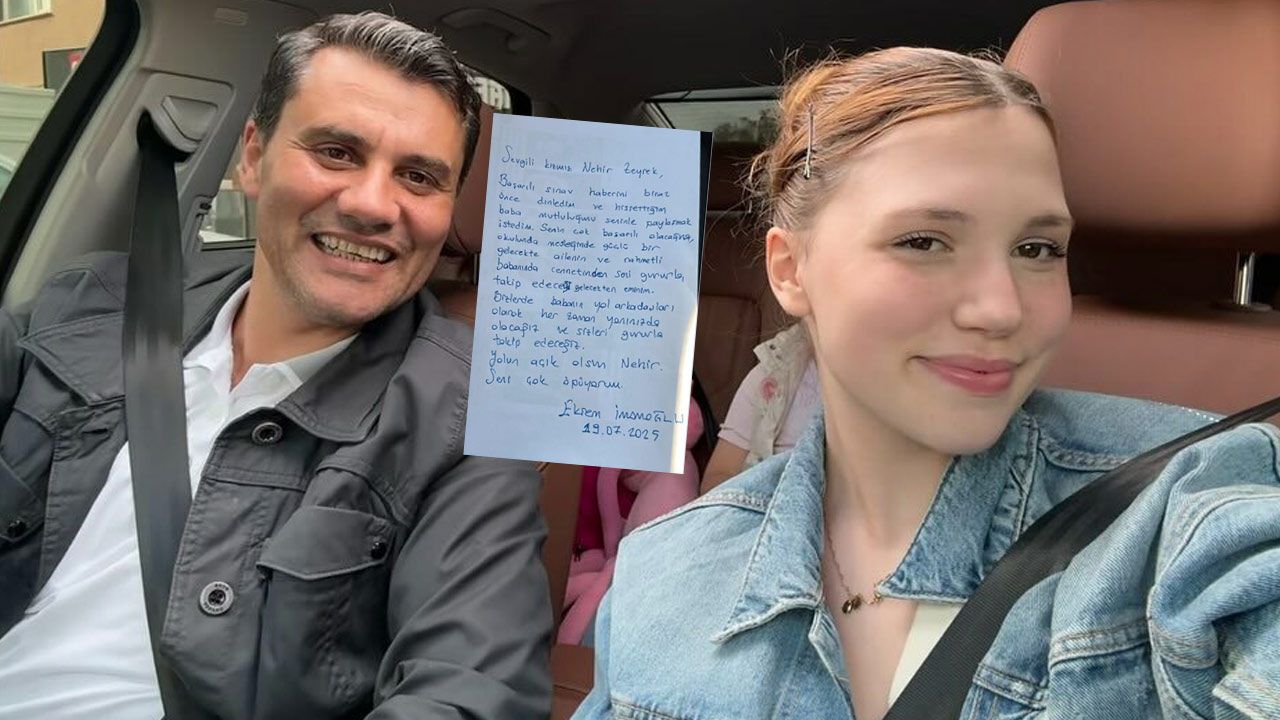 Sevgili kızımız Nehir Zeyrek,
Başarılı sınav haberini biraz
önce dinledim ve hissettiğim
baba mutluluğunu seninle paylaşmak
istedim. Senin çok başarılı olacağına,
okulunda mesleğinde güçlü bir
gelecekte ailenin ve rahmetli
babanında cennetinden seni gururla,
takip edeceği gelecekten eminim.
Bizlerde babanın yol arkadaşları
olarak her zaman yanınızda
olacağız ve sizleri gururla
takip edeceğiz.
Yolun açık olsun Nehir.
Seni çok öpüyorum.
Ekrem İmamoğlu
19.07.2025